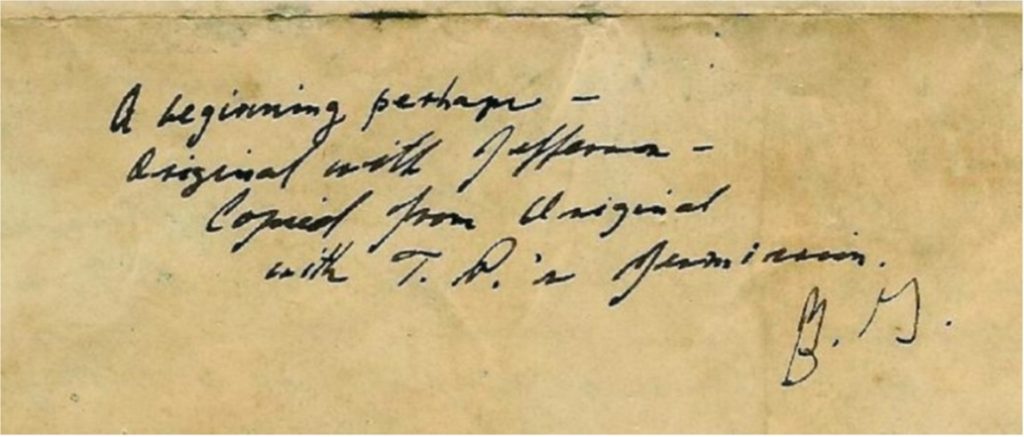 A beginning perhaps –
Original with Jefferson –
Copied from Original
with T. P.'s permission.